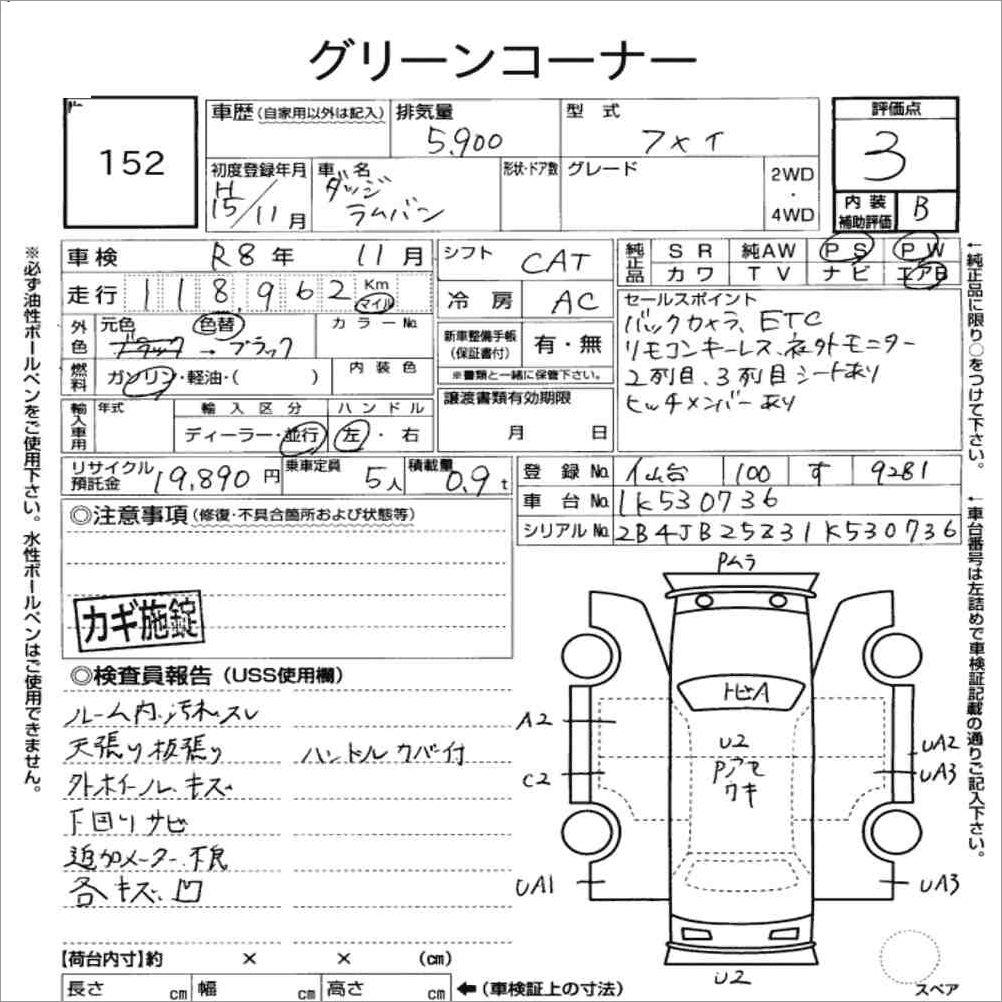 グリーンコーナー
152
車歴 (自家用以外は記入) 排気量 型 式 評価点
5,900 フメイ 3
初度登録年月 車 名 形状・ドア数 グレード 2WD・4WD 内装補助評価 B
H15/11月 ダッジ ラムバン
車検 R8年 11月
シフト CAT
純正品 SR 純AW PS PW
カワ TV ナビ エアB
走行 118,962 Km マイル
冷房 AC
セールスポイント
バックカメラ、ETC
リモコンキーレス、社外モニター
2列目、3列目シートあり
ヒッチメンバーあり
外色 元色 色替 カラーNo.
ブラック→ブラック
新車整備手帳 (保証書付) 有・無
※書類と一緒に保管下さい。
燃料 ガソリン・軽油・( ) 内装色
譲渡書類有効期限
月 日
輸入車用 年式 輸入区分 ハンドル
ディーラー・並行 左・右
リサイクル預託金 19,890円 乗車定員 5人 積載量 0.9t
登録No. 仙台 100 す 9281
車台No. 1K530736
シリアルNo. 2B4JB25Z31K530736
◎注意事項 (修復・不具合箇所および状態等)
カギ施錠
◎検査員報告 (USS使用欄)
ルーム内.汚れ.スレ
天張り板張り ハンドルカバー付
外ホイール.キズ
下回りサビ
追加メーター.不良
各キズ.凹
Pムラ
トビA
A2
U2
Pアセ
ウキ
UA2
C2
UA3
UA1
UA3
U2
スペア
【荷台内寸】約 × × (cm)
長さ cm 幅 cm 高さ cm ←(車検証上の寸法)
※必ず油性ボールペンをご使用下さい。水性ボールペンはご使用できません。
←純正品に限り○をつけて下さい。
←車台番号は左詰めで車検証記載の通りご記入下さい。